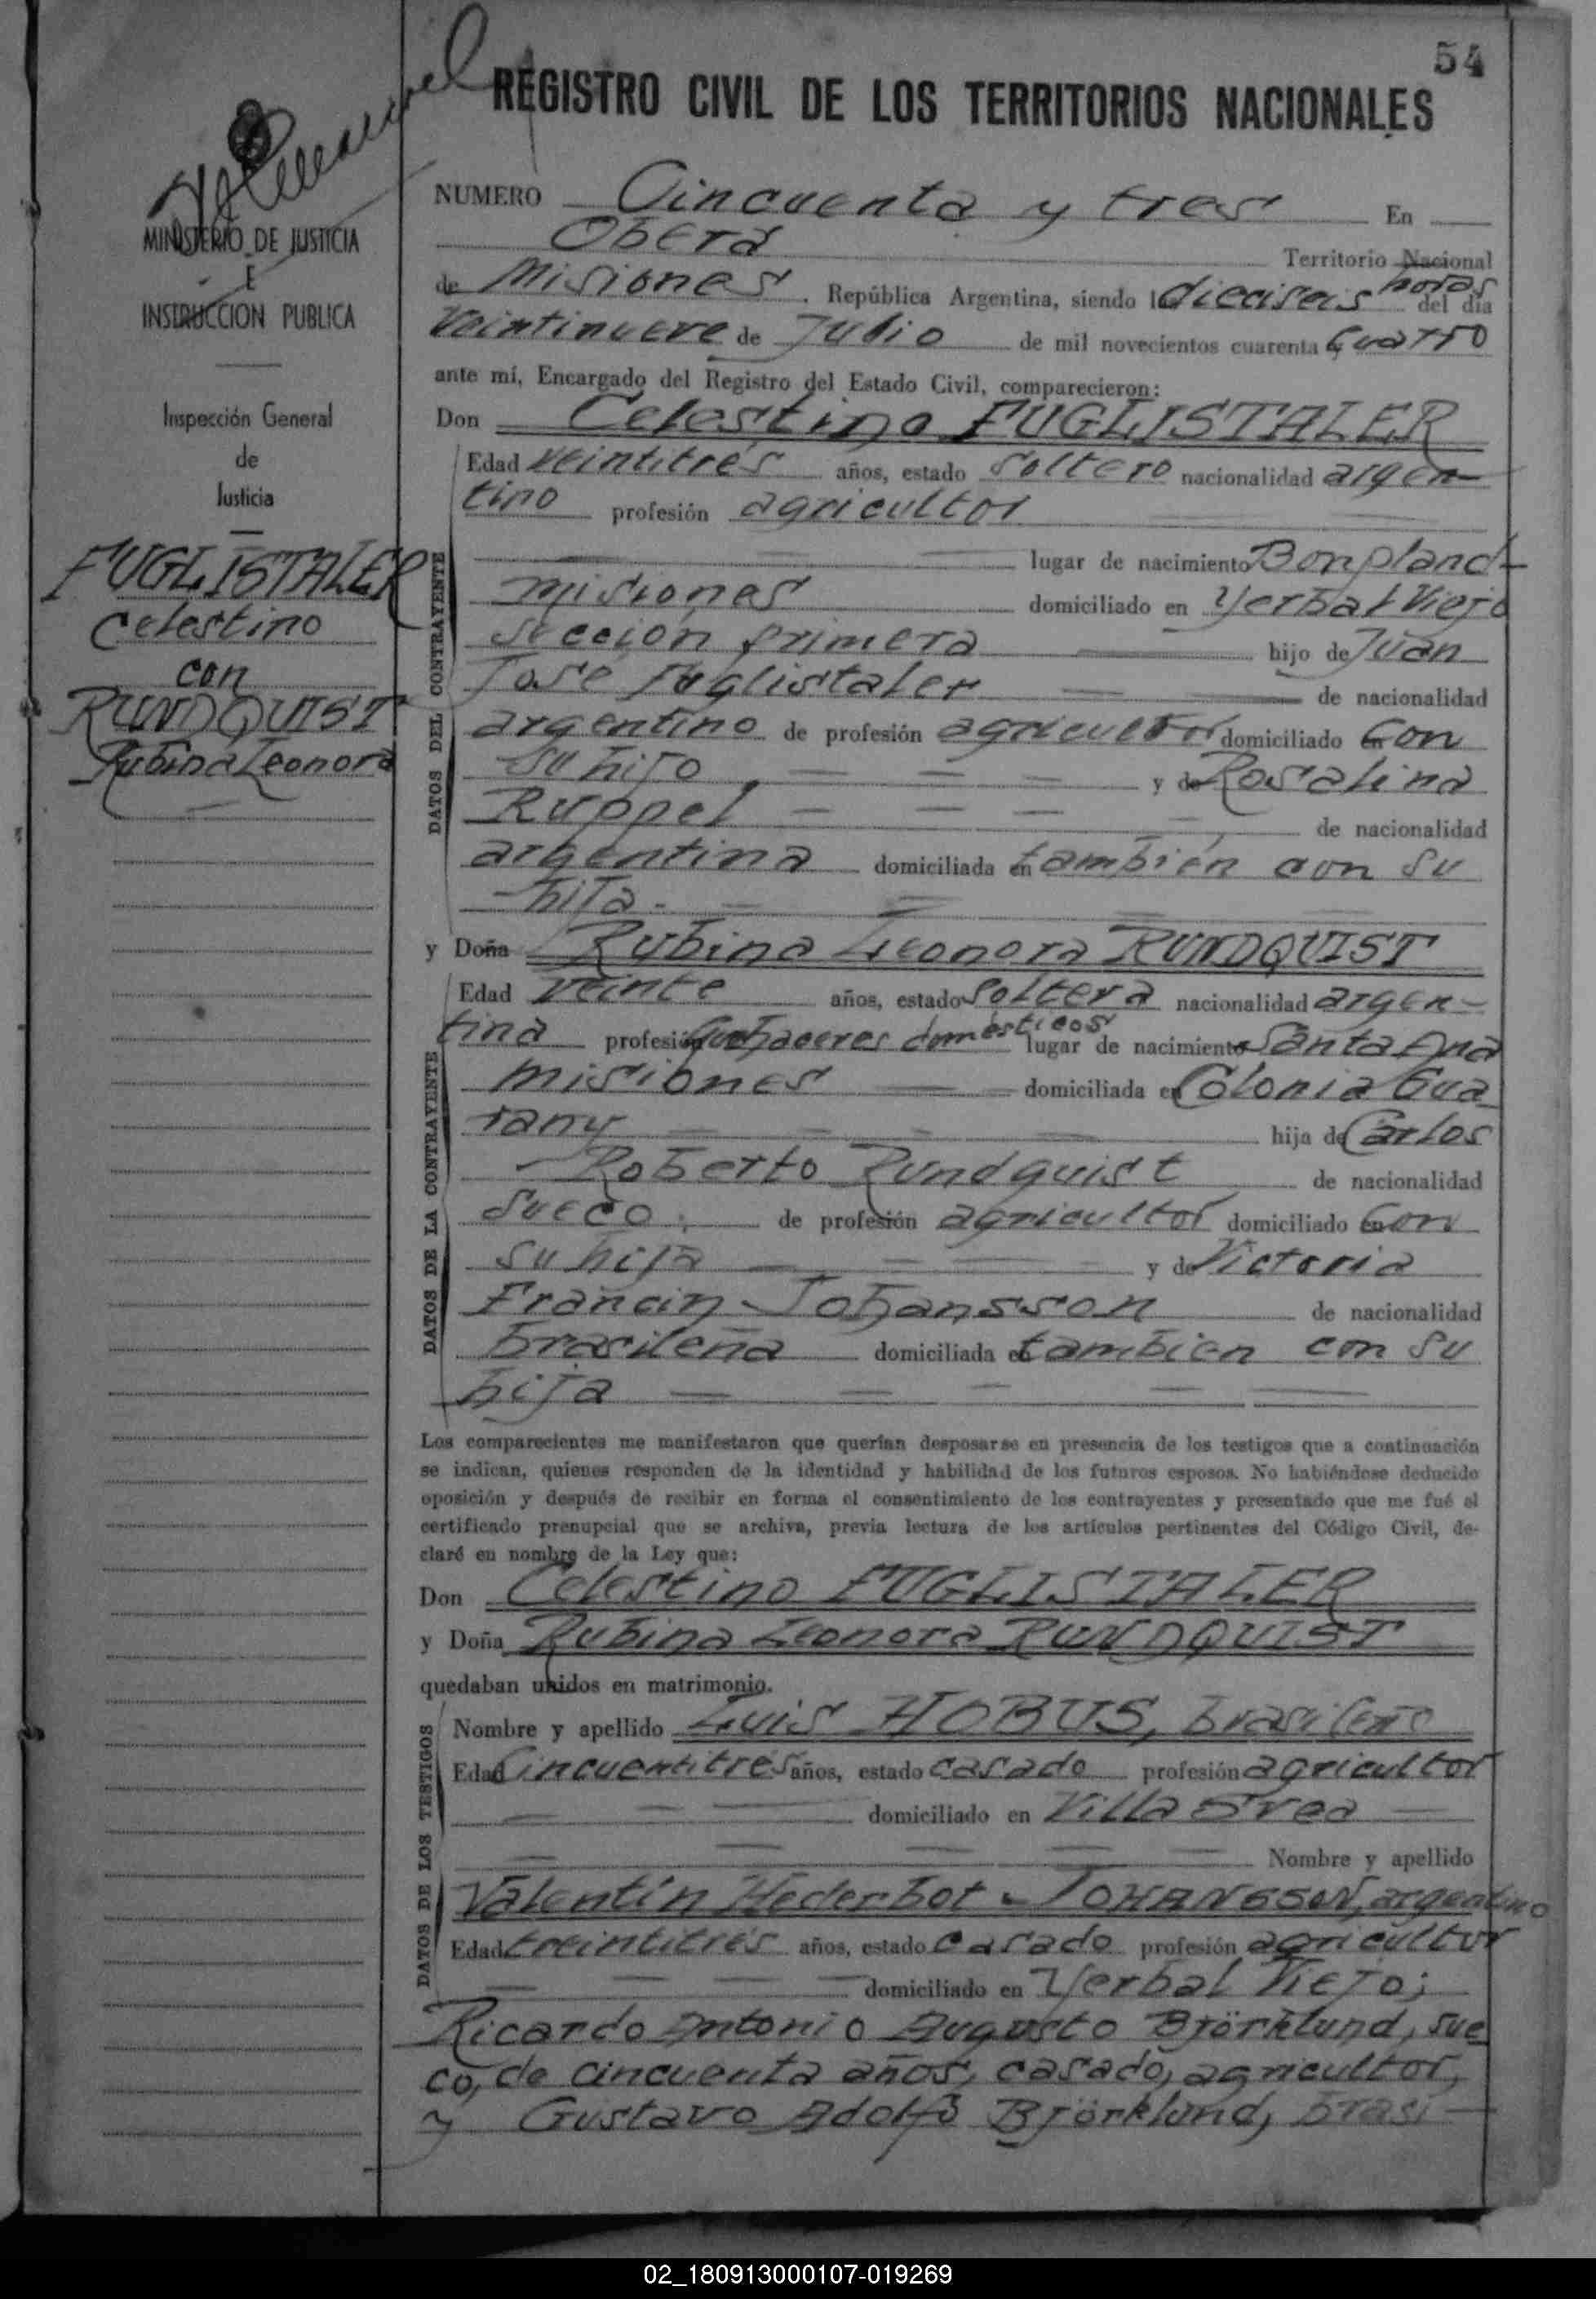 54
REGISTRO CIVIL DE LOS TERRITORIOS NACIONALES
MINISTERIO DE JUSTICIA
E
INSTRUCCION PUBLICA
Inspección General
de
Justicia
FUGLISTALER
Celestino
con
RUNDQUIST
Rubina Leonora
NUMERO Cincuenta y tres En
Oberá Territorio Nacional
de Misiones. República Argentina, siendo las dieciseis horas del día
Veintinueve de Julio de mil novecientos cuarenta y cuatro
ante mí, Encargado del Registro del Estado Civil, comparecieron:
Don Celestino FUGLISTALER
DATOS DEL CONTRAYENTE
Edad veintitrés años, estado soltero nacionalidad argen-
tino profesión agricultor
lugar de nacimiento Bonpland-
misiones domiciliado en Yerbal Viejo
sección primera hijo de Juan
José Fuglistaler de nacionalidad
argentino de profesión agricultor domiciliado en con
su hijo y de Rosalina
Ruppel de nacionalidad
argentina domiciliada en también con su
hijo.
y Doña Rubina Leonora RUNDQUIST
DATOS DE LA CONTRAYENTE
Edad veinte años, estado soltera nacionalidad argen-
tina profesión quehaceres domésticos lugar de nacimiento Santa Ana
misiones domiciliada en Colonia Gua
rany hija de Carlos
Roberto Rundquist de nacionalidad
sueco. de profesión agricultor domiciliado en con
su hija y de Victoria
Johansson de nacionalidad
brasileña domiciliada en tambien con su
hija
Los comparecientes me manifestaron que querían desposarse en presencia de los testigos que a continuación
se indican, quienes responden de la identidad y habilidad de los futuros esposos. No habiéndose deducido
oposición y después de recibir en forma el consentimiento de los contrayentes y presentado que me fué el
certificado prenupcial que se archiva, previa lectura de los artículos pertinentes del Código Civil, de-
claré en nombre de la Ley que:
Don Celestino FUGLISTALER
y Doña Rubina Leonora RUNDQUIST
quedaban unidos en matrimonio.
DATOS DE LOS TESTIGOS
Nombre y apellido Luis HOBUS, brasileño
Edad Cincuentitrés años, estado casado profesión agricultor
domiciliado en Villa Svea
Nombre y apellido
Valentín Hederbot - JOHANSSON, argentino
Edad treintitrés años, estado casado profesión agricultor
domiciliado en Yerbal Viejo;
Ricardo Antonio Augusto Björklund, sue
co, de cincuenta años, casado, agricultor,
y Gustavo Adolfo Björklund, brasi-
02_180913000107-019269